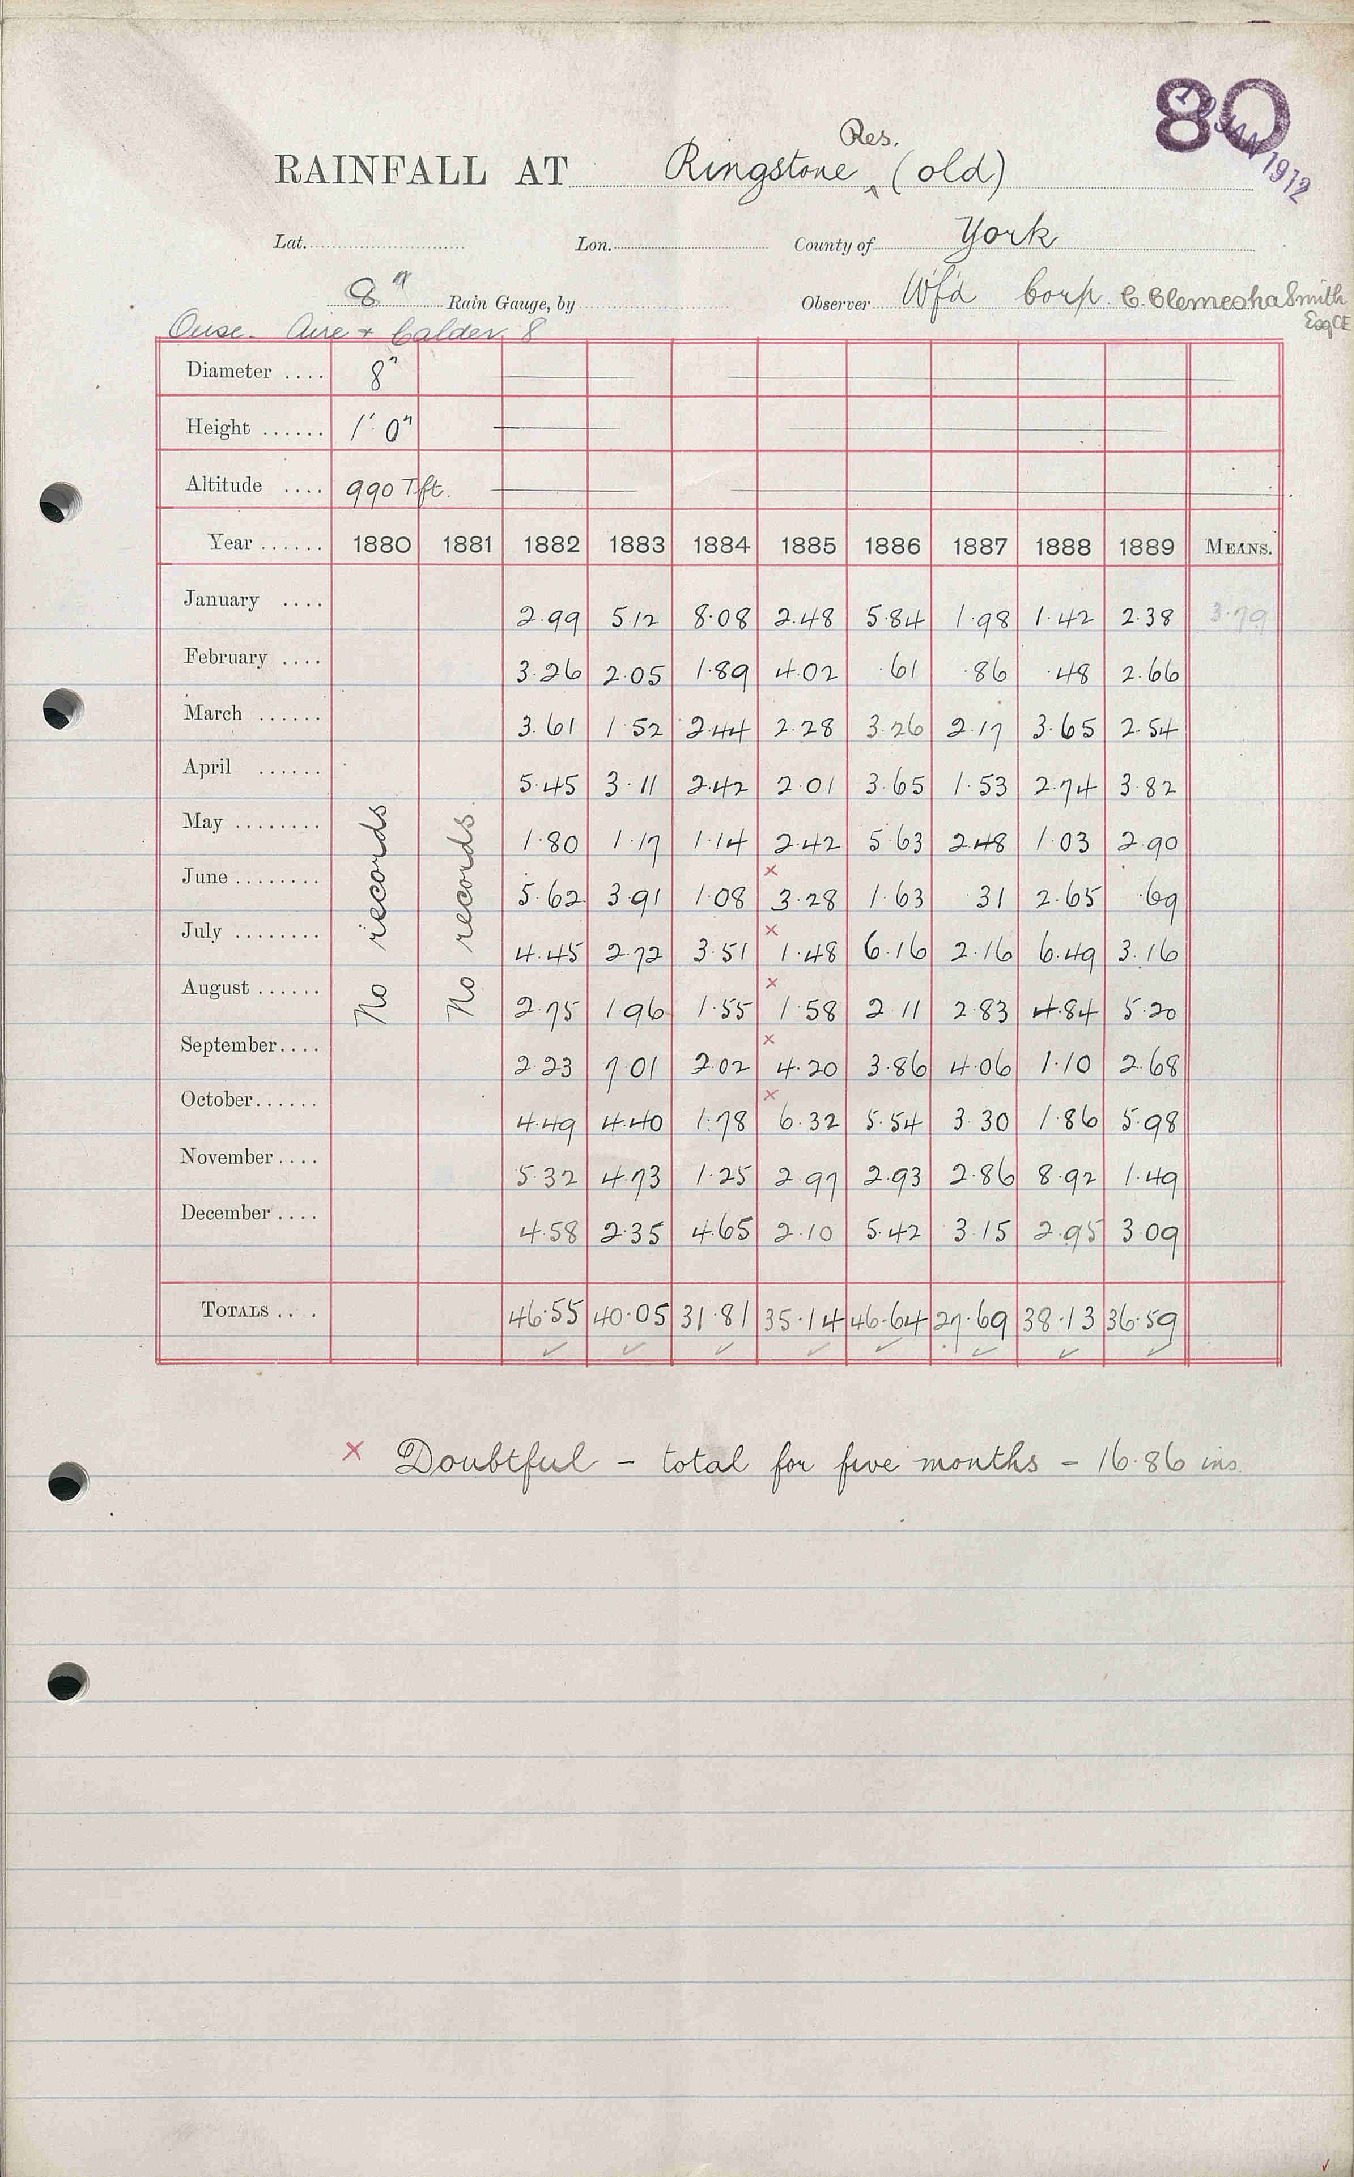 80
1 JAN 1912
RAINFALL AT Ringstone Res. (old)
Lat. Lon. County of York
8" Rain Gauge, by Observer Wf'd Corp. C. Clemesha Smith Esq CE
Ouse - Aire + Calder 8
Diameter .... 8"
Height ...... 1' 0"
Altitude .... 990 T ft.
Year ...... 1880 1881 1882 1883 1884 1885 1886 1887 1888 1889 MEANS.
No records
No records
January .... 2.99 5.12 8.08 2.48 5.84 1.98 1.42 2.38 3.79
February .... 3.26 2.05 1.89 4.02 .61 .86 .48 2.66
March ...... 3.61 1.52 2.44 2.28 3.26 2.17 3.65 2.54
April ...... 5.45 3.11 2.42 2.01 3.65 1.53 2.74 3.82
May ........ 1.80 1.17 1.14 2.42 5.63 2.48 1.03 2.90
June ........ 5.62 3.91 1.08 × 3.28 1.63 31 2.65 .69
July ........ 4.45 2.72 3.51 × 1.48 6.16 2.16 6.49 3.16
August ...... 2.75 1 96 1.55 × 1.58 2 11 2.83 4.84 5.20
September.... 2 23 7 01 2.02 × 4.20 3.86 4.06 1.10 2.68
October...... 4.49 4.40 1.78 × 6.32 5.54 3 30 1.86 5.98
November .... 5.32 4.73 1.25 2 97 2.93 2.86 8.92 1.49
December .... 4.58 2.35 4.65 2.10 5.42 3.15 2.95 3 09
TOTALS .... 46.55 40.05 31.81 35.14 46.64 27.69 38.13 36.59
✓ ✓ ✓ ✓ ✓ ✓ ✓ ✓
× Doubtful - total for five months - 16.86 ins.